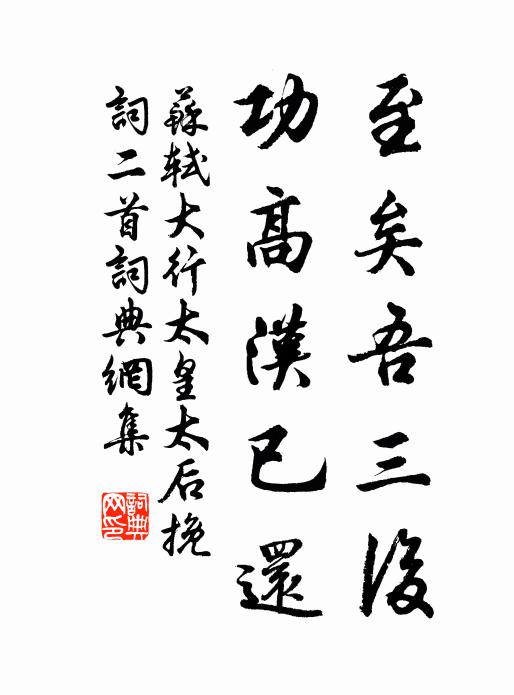 至矣吾三後
功高漢已還
蘇軾大行太皇太后挽
詞二首詞典網集
詞典
网印